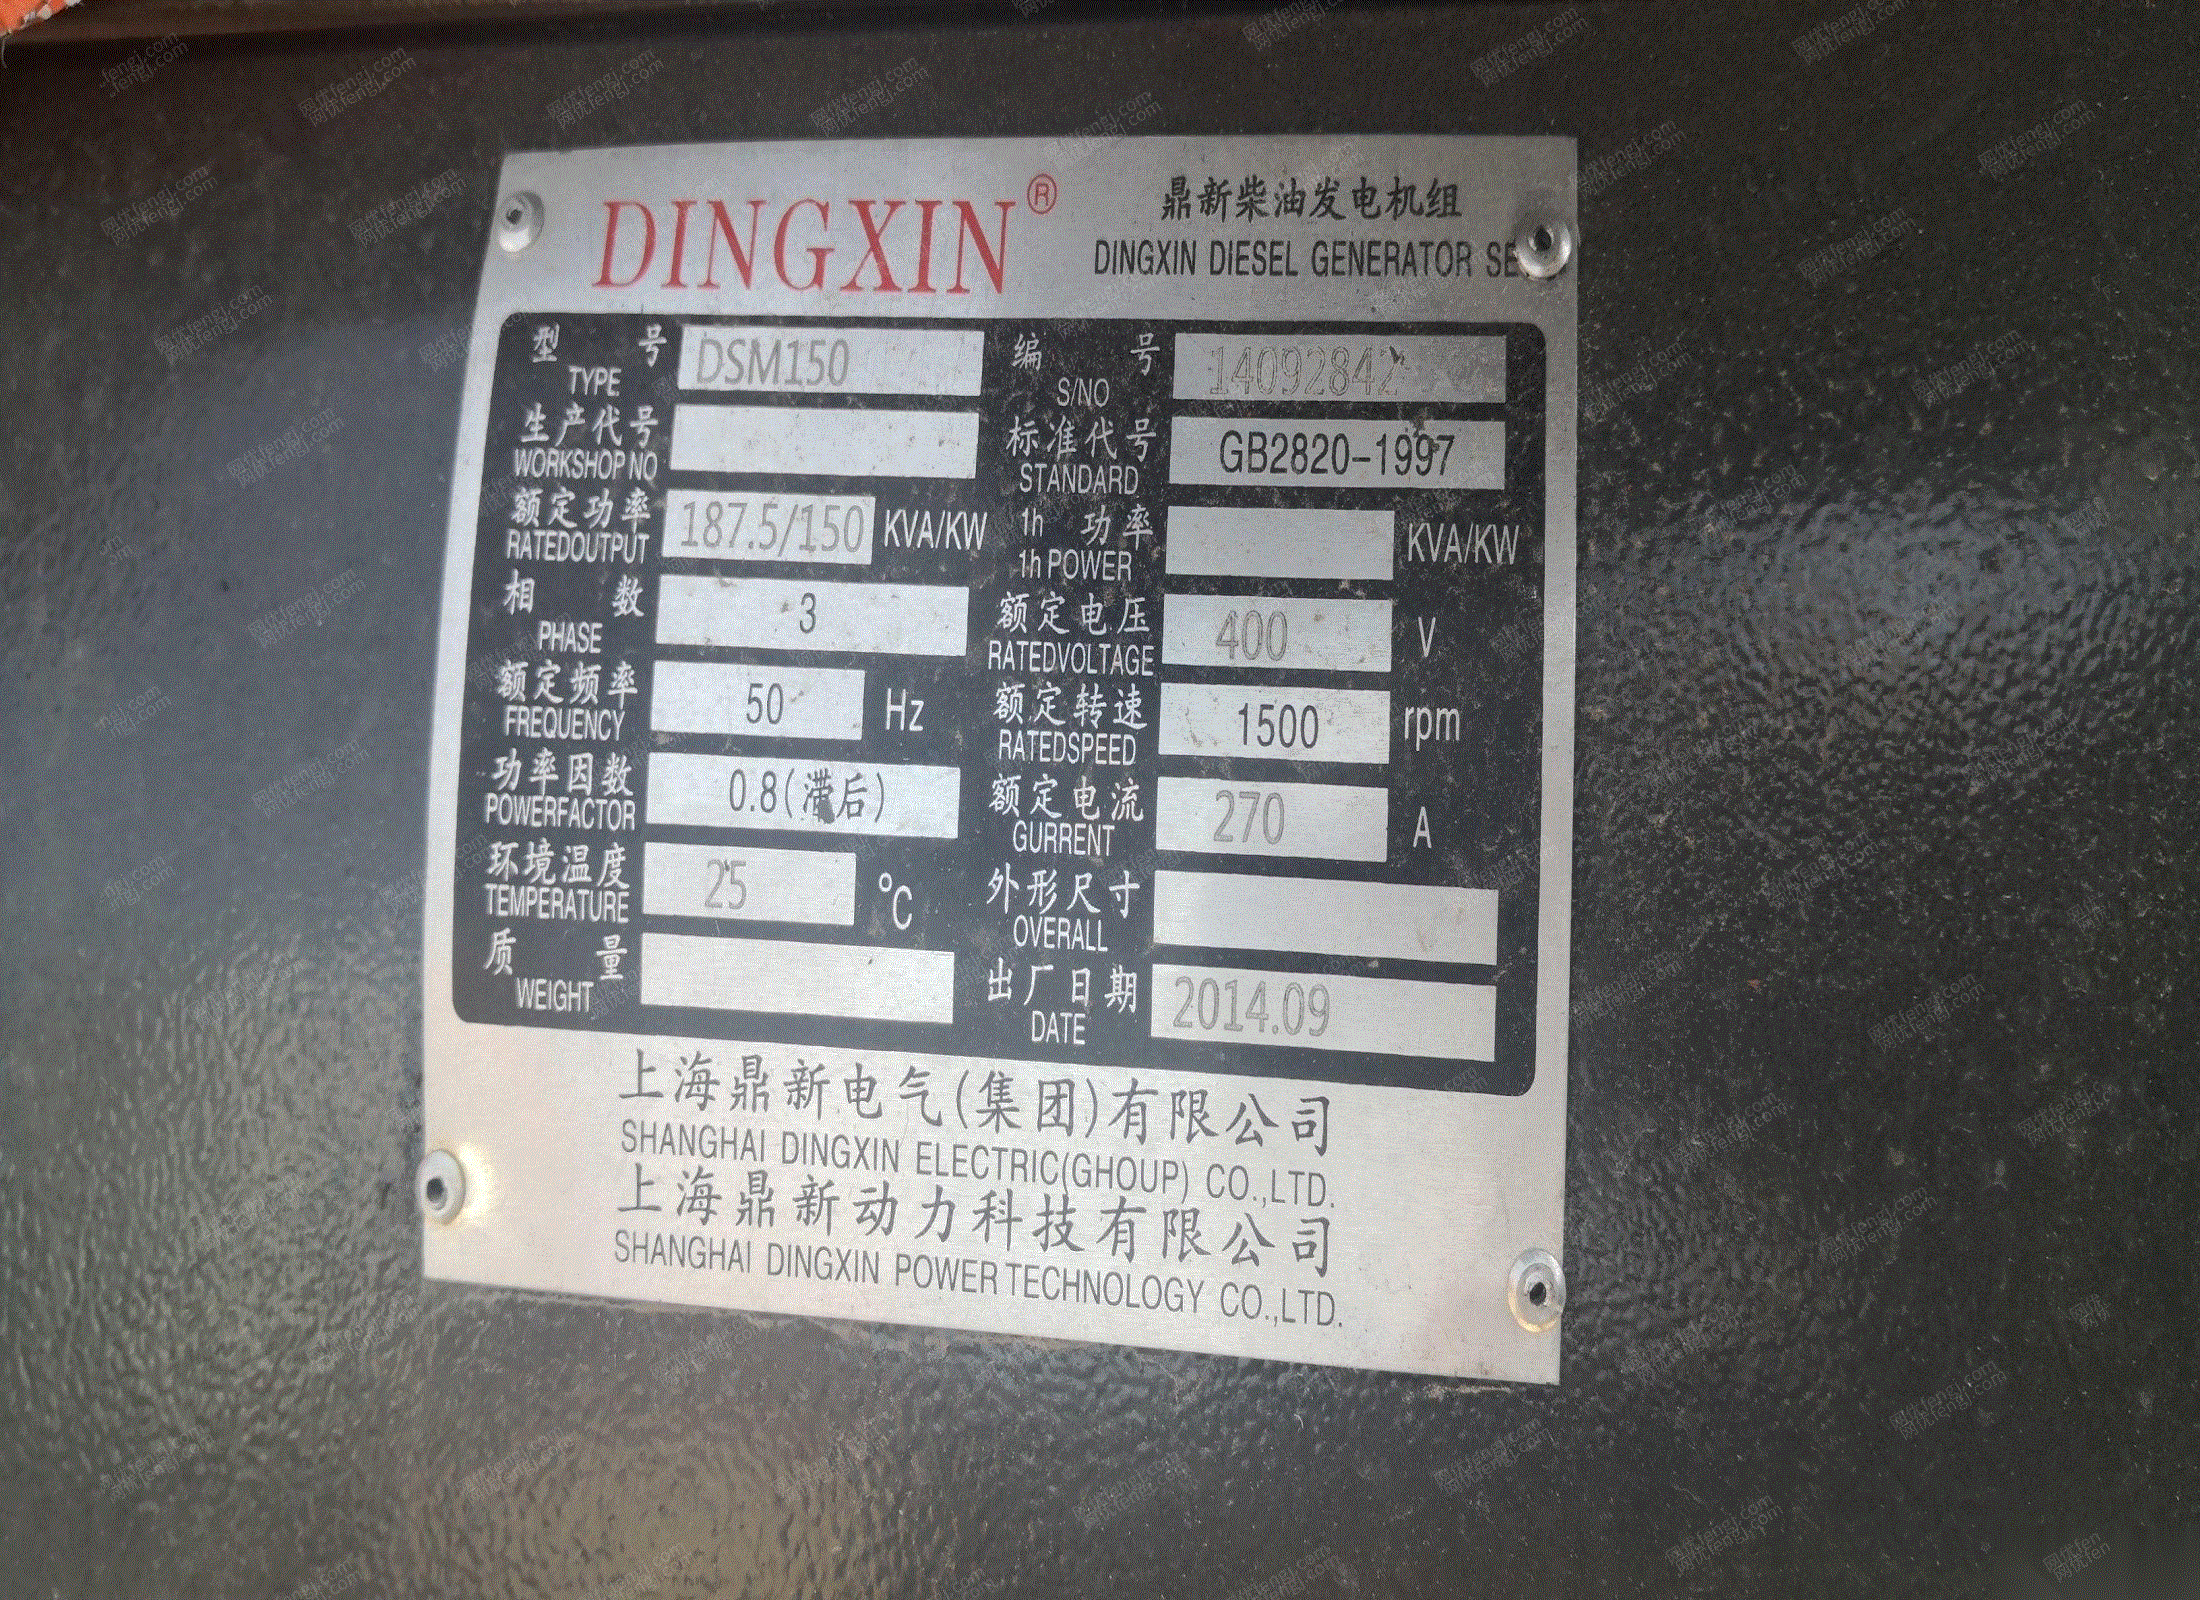 DINGXIN®
鼎新柴油发电机组
DINGXIN DIESEL GENERATOR SE
型 号 DSM150 编 号 14092842
TYPE S/NO
生产代号 标准代号 GB2820-1997
WORKSHOP NO STANDARD
额定功率 187.5/150 KVA/KW 1h 功率 KVA/KW
RATEDOUTPUT 1h POWER
相 数 3 额定电压 400 V
PHASE RATEDVOLTAGE
额定频率 50 Hz 额定转速 1500 rpm
FREQUENCY RATEDSPEED
功率因数 0.8(滞后) 额定电流 270 A
POWERFACTOR GURRENT
环境温度 25 °C 外形尺寸
TEMPERATURE OVERALL
质 量 出厂日期 2014.09
WEIGHT DATE
上海鼎新电气(集团)有限公司
SHANGHAI DINGXIN ELECTRIC(GHOUP) CO.,LTD.
上海鼎新动力科技有限公司
SHANGHAI DINGXIN POWER TECHNOLOGY CO.,LTD.